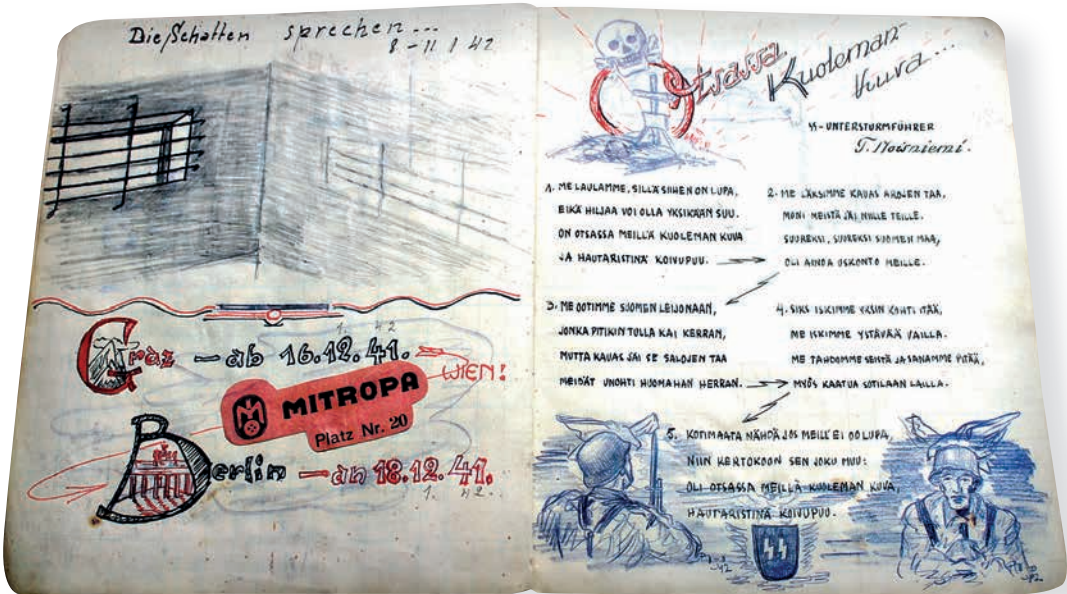 Die Schatten sprechen...
8-11 1 42
Graz - ab 16.12.41.
1. 42
WIEN!
MITROPA
Platz Nr. 20
Berlin - an 18.12.41.
1. 42.
Otsassa
Kuoleman
kuva...
SS-UNTERSTURMFÜHRER
T.
1. ME LAULAMME, SILLÄ SIIHEN ON LUPA,
EIKÄ HILJAA VOI OLLA YKSIKÄÄN SUU.
ON OTSASSA MEILLÄ KUOLEMAN KUVA
JA HAUTARISTINÄ KOIVUPUU.
2. ME LÄKSIMME KAUAS AROJEN TAA,
MONI MEISTÄ JÄI NIILLE TEILLE.
SUUREKSI, SUUREKSI SUOMEN MAA,
OLI AINOA USKONTO MEILLE.
3. ME OOTIMME SUOMEN LEIJONAAN,
JONKA PITIKIN TULLA KAI KERRAN,
MUTTA KAUAS JÄI SE SALOJEN TAA
MEIDÄT UNOHTI HUOMAHAN HERRAN.
4. SIKS ISKIMME YKSIN KOHTI ITÄÄ,
ME ISKIMME YSTÄVÄÄ VAILLA.
ME TAHDOMME SEISTÄ JA SANAMME PITÄÄ,
MYÖS KAATUA SOTILAAN LAILLA.
5. KOTIMAATA NÄHDÄ JOS MEILL' EI OO LUPA,
NIIN KERTOKOON SEN JOKU MUU:
OLI OTSASSA MEILLÄ KUOLEMAN KUVA,
HAUTARISTINÄ KOIVUPUU.